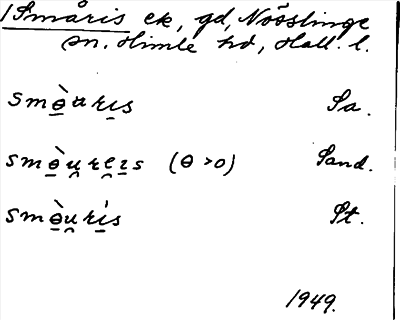 /Småris ek, gd, Nööslinge
sn. Himle hd, Hall. l.
smɵ̯̀u̯ri̱s Sa.
smɵ̯̀u̯re̯i̱s (ɵ > o) Sand.
smɵ̯̀u̯rís St.
1949.